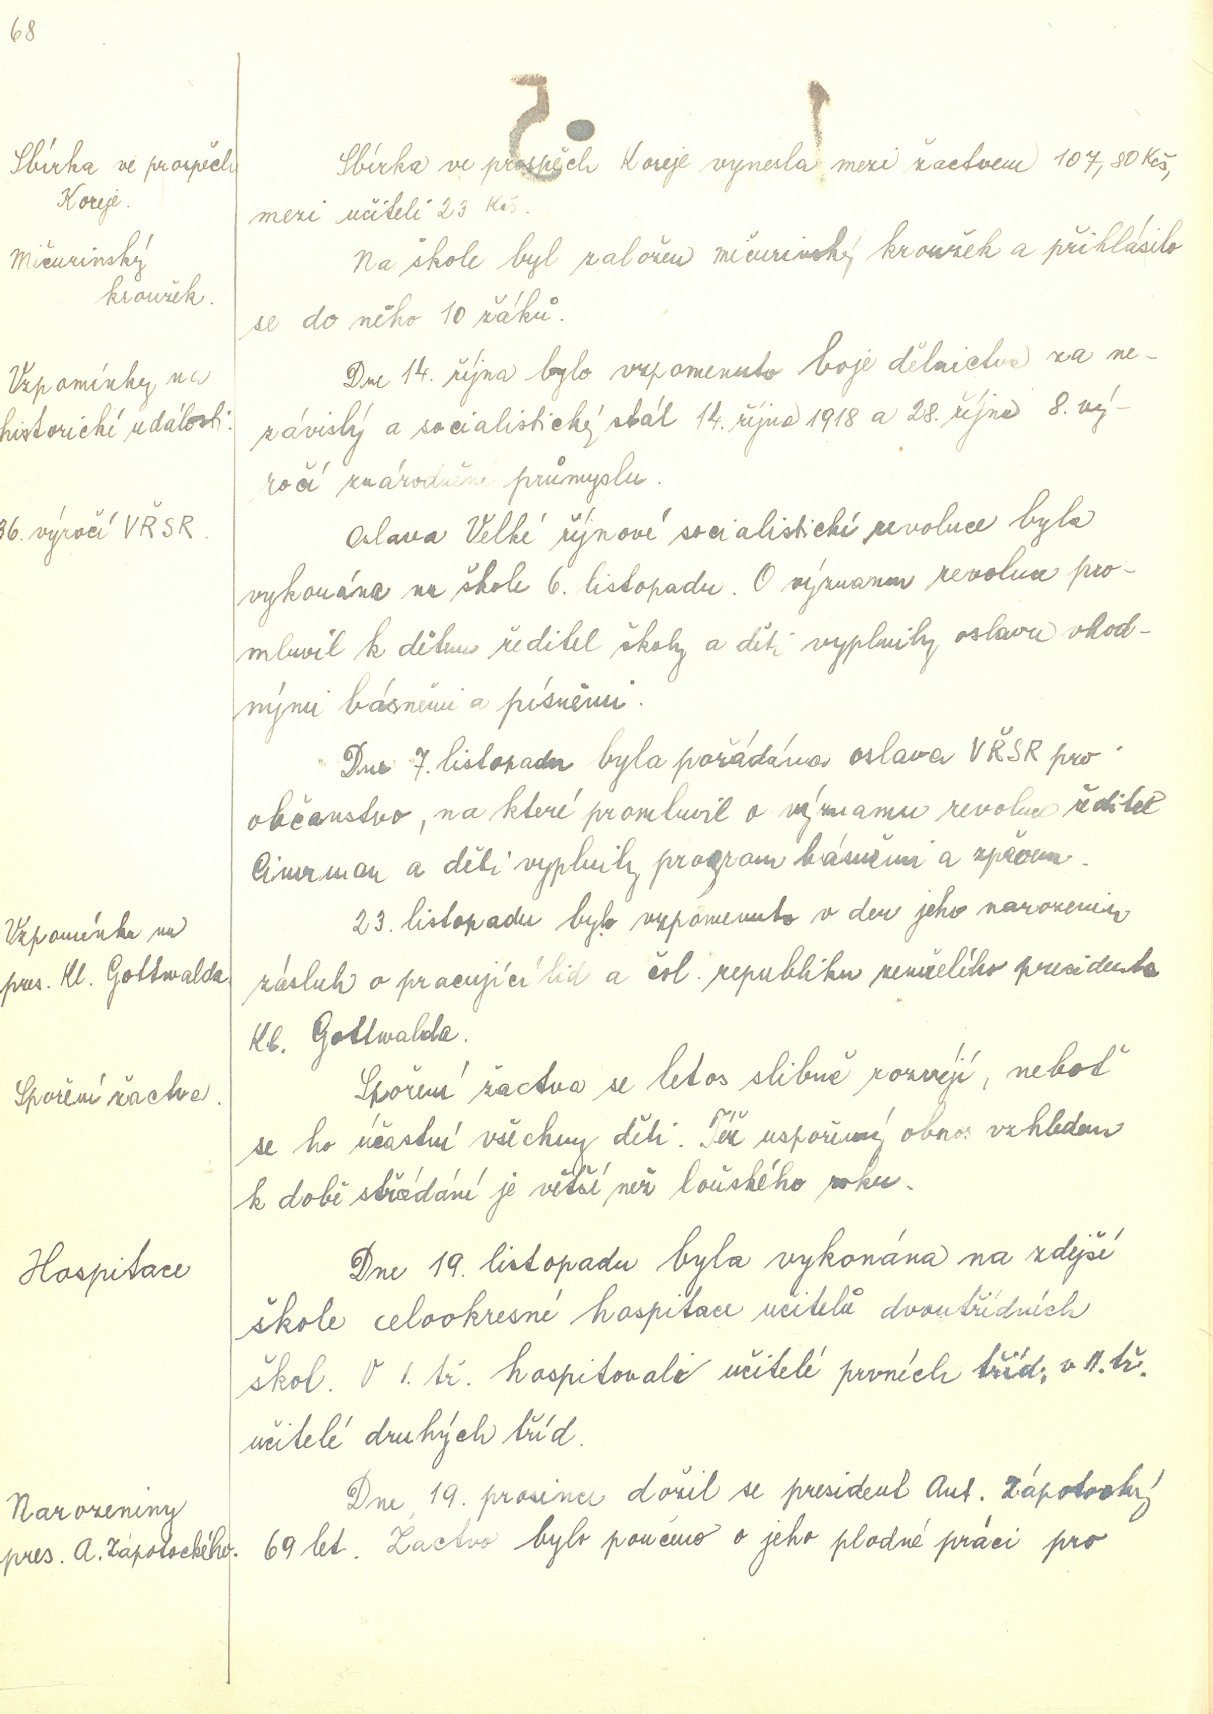 68
Sbírka ve prospěch
Koreje.
Sbírka ve prospěch Koreje vynesla mezi žactvem 107,80 Kčs,
mezi učiteli 23 Kčs.
Mičurinský
kroužek.
Na škole byl založen mičurinský kroužek a přihlásilo
se do něho 10 žáků.
Vzpomínky na
historické události.
Dne 14. října bylo vzpomenuto boje dělnictva za ne-
závislý a socialistický stát 14. října 1918 a 28. října 8. vý-
ročí znárodnění průmyslu.
36. výročí VŘSR.
Oslava Velké říjnové socialistické revoluce byla
vykonána na škole 6. listopadu. O významu revoluce pro-
mluvil k dětem ředitel školy a děti vyplnily oslavu vhod-
nými básněmi a písněmi.
Dne 7. listopadu byla pořádána oslava VŘSR pro
občanstvo, na které promluvil o významu revoluce ředitel
Cimrman a děti vyplnily program básněmi a zpěvem.
Vzpomínka na
pres. Kl. Gottwalda.
23. listopadu bylo vzpomenuto v den jeho narozenin
zásluh o pracující lid a čsl. republiku zemřelého presidenta
Kl. Gottwalda.
Spoření žactva.
Spoření žactva se letos slibně rozvíjí, neboť
se ho účastní všechny děti. Též uspořený obnos vzhledem
k době střádání je větší než loňského roku.
Hospitace
Dne 19. listopadu byla vykonána na zdejší
škole celookresné hospitace učitelů dvoutřídních
škol. V I. tř. hospitovali učitelé prvních tříd, v II. tř.
učitelé druhých tříd.
Narozeniny
pres. A. Zápotockého.
Dne 19. prosince dožil se president Ant. Zápotocký
69 let. Žactvo bylo poučeno o jeho plodné práci pro